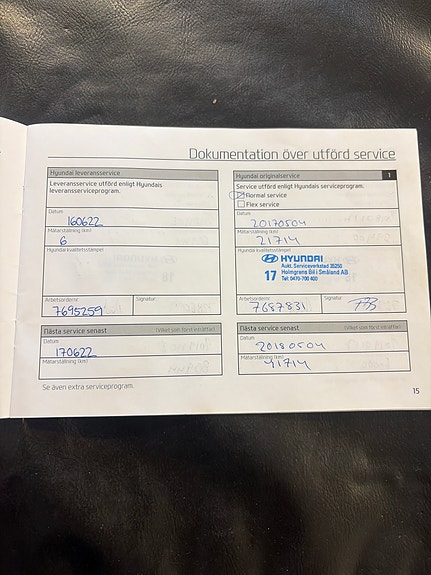 Dokumentation över utförd service
Hyundai leveransservice
Leveransservice utförd enligt Hyundais
leveransserviceprogram.
Datum
160622
Mätarställning (km)
6
Hyundai kvalitetsstämpel
Arbetsordernr
Signatur
7695259
Nästa service senast
(Vilket som först inträffar)
Datum
170622
Mätarställning (km)
Se även extra serviceprogram.
Hyundai originalservice
1
Service utförd enligt Hyundais serviceprogram.
Normal service
Flex service
Datum
20170504
Mätarställning (km)
21714
Hyundai kvalitetsstämpel
HYUNDAI
Aukt. Serviceverkstad 35250
17 Holmgrens Bil i Småland AB
Tel: 0470-700 400
Arbetsordernr
Signatur
7687831
Nästa service senast
(Vilket som först inträffar)
Datum
20180504
Mätarställning (km)
41714
15